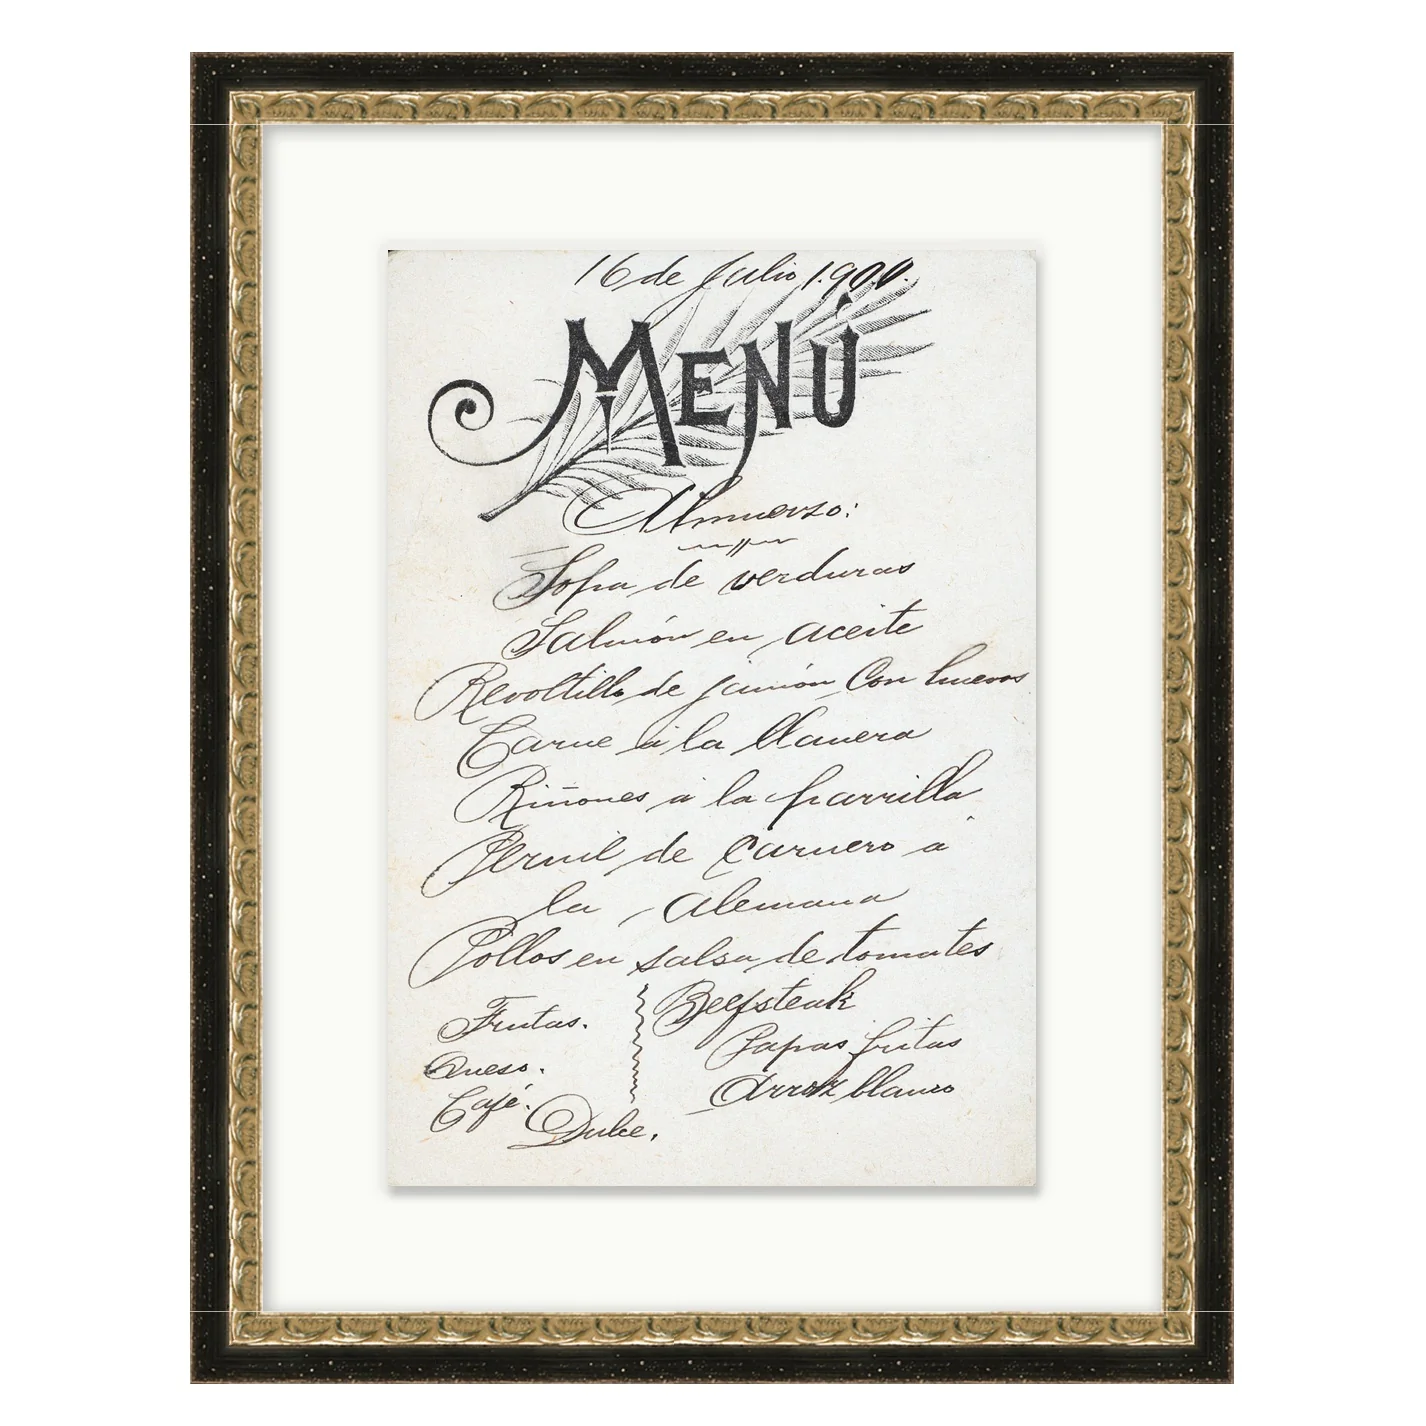 16 de Julio 1.900.
MENÚ
Almuerzo:
Sopa de verduras
Salmón en aceite
Revoltillo de jamón con huevos
Carne á la llanera
Riñones á la parrilla
Pernil de Carnero á
la Alemana
Pollos en salsa de tomates
Frutas.
Queso.
Café.
Dulce.
Beefsteak
Papas fritas
Arroz blanco